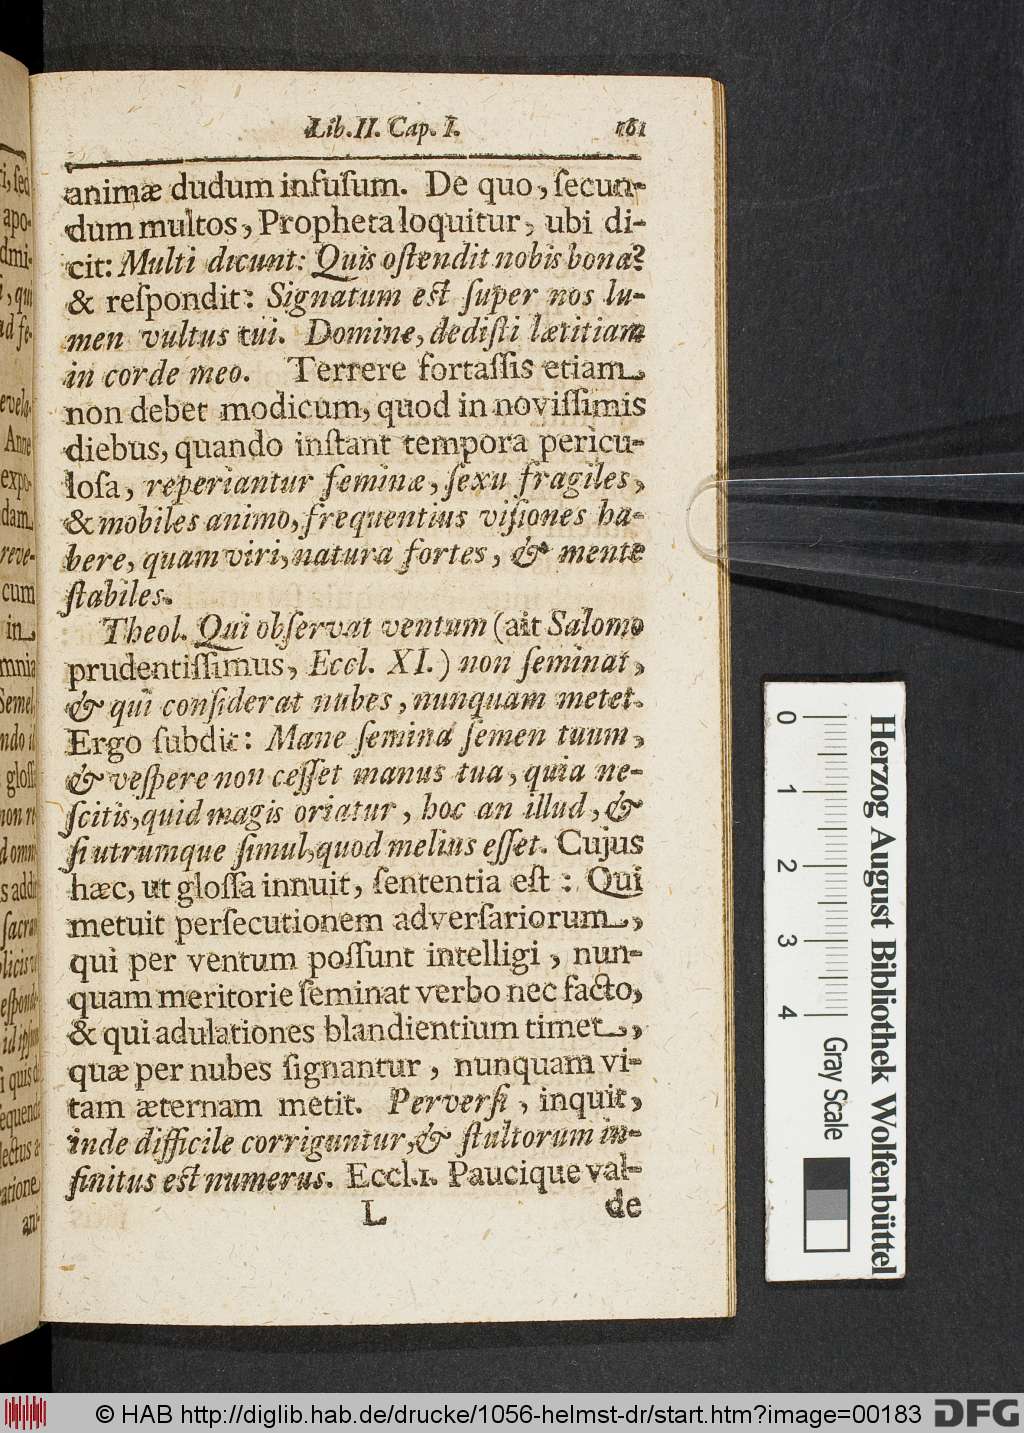 Lib. II. Cap. I. 161
animæ dudum infuſum. De quo, ſecun-
dum multos, Propheta loquitur, ubi di-
cit: Multi dicunt: Quis oſtendit nobis bona?
& reſpondit: Signatum eſt ſuper nos lu-
men vultus tui. Domine, dediſti lætitiam
in corde meo. Terrere fortaſſis etiam
non debet modicum, quod in noviſſimis
diebus, quando inſtant tempora pericu-
loſa, reperiantur feminæ, ſexu fragiles,
& mobiles animo, frequentius viſiones ha-
bere, quam viri, natura fortes, & mente
ſtabiles.
Theol. Qui obſervat ventum (ait Salomo
prudentiſſimus, Eccl. XI.) non ſeminat,
& qui conſiderat nubes, nunquam metet.
Ergo ſubdit: Mane ſemina ſemen tuum,
& veſpere non ceſſet manus tua, quia ne-
ſcitis, quid magis oriatur, hoc an illud, &
ſi utrumque ſimul, quod melius eſſet. Cujus
hæc, ut gloſſa innuit, ſententia eſt: Qui
metuit perſecutionem adverſariorum,
qui per ventum poſſunt intelligi, nun-
quam meritorie ſeminat verbo nec facto,
& qui adulationes blandientium timet,
quæ per nubes ſignantur, nunquam vi-
tam æternam metit. Perverſi, inquit,
inde difficile corriguntur, & ſtultorum in-
finitus eſt numerus. Eccl. 1. Paucique val-
L de
i, ſed
apo-
dmi-
i, qui
ad fe-
evela-
Anne
expo-
dam
reve-
cum
in
mnia
Semel
ndo i
gloſſ
non re
d omn
s addit
ſacra
licis
eſpond
id ipſu
ſi quis d
equend
lectus a
ratione
ani-
0 1 2 3 4
Gray Scale
Herzog August Bibliothek Wolfenbüttel
© HAB http://diglib.hab.de/drucke/1056-helmst-dr/start.htm?image=00183
DFG